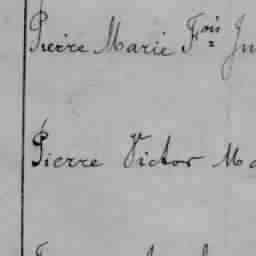 Pierre Marie Fois Ju
Pierre Victor Ma